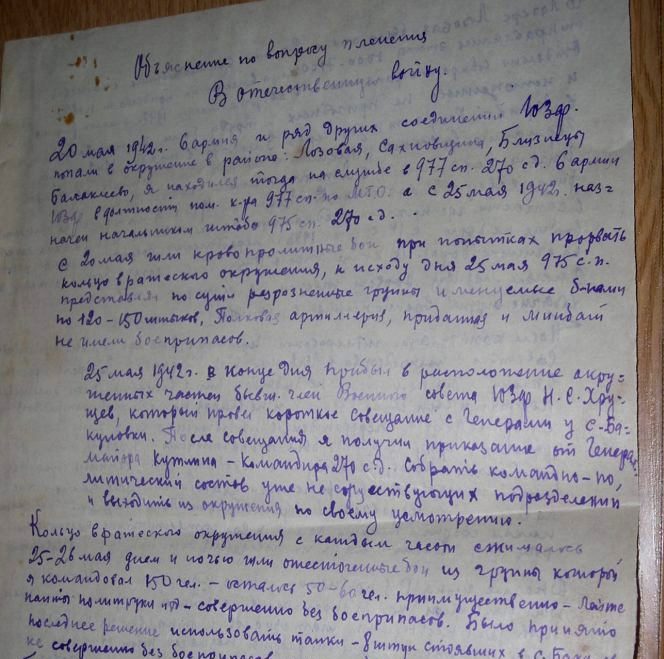 Объяснение по вопросу пленения
В отечественную войну.
20 мая 1942 г. 6 армия и ряд других соединений ЮЗфр.
попали в окружение в районе: Лозовая, Сахновщина, Близнецы
Балаклеево, я находился тогда на службе в 977 сп. 270 с.д. 6 армии
ЮЗфр в должности пом. к-ра 977 сп. по МТО. а с 25 мая 1942 г. наз=
начен начальником штаба 975 сп. 270 с.д.
С 20 мая шли кровопролитные бои при попытках прорвать
кольцо вражеского окружения, к исходу дня 25 мая 975 с.п.
представлял по сути разрозненные группы именуемые б-нами
по 120-150 штыков, Полковая артиллерия, приданная и минбат
не имели боеприпасов.
25 мая 1942 г. в конце дня прибыл в расположение окру=
женных частей бывш. член Военного совета ЮЗфр Н.С. Хру=
щев, который провел короткое совещание с Генералами у с-
После совещания я получил приказание от Генерал
майора Кутлина - Командира 270 с.д. собрать командно-по,
литический состав уже не существующих подразделений
и выходить из окружения по своему усмотрению.
Кольцо вражеского окружения с каждым часом сжималось
25-26 мая днем и ночью шли ожесточенные бои из группы которой
я командовал 150 чел. - осталось 50-60 чел. приимущественно - лейте
нанты политруки - совершенно без боеприпасов. Было принято
последнее решение использовать танки - 8 штук стоявших в с.
не совершенно без боеприпасов